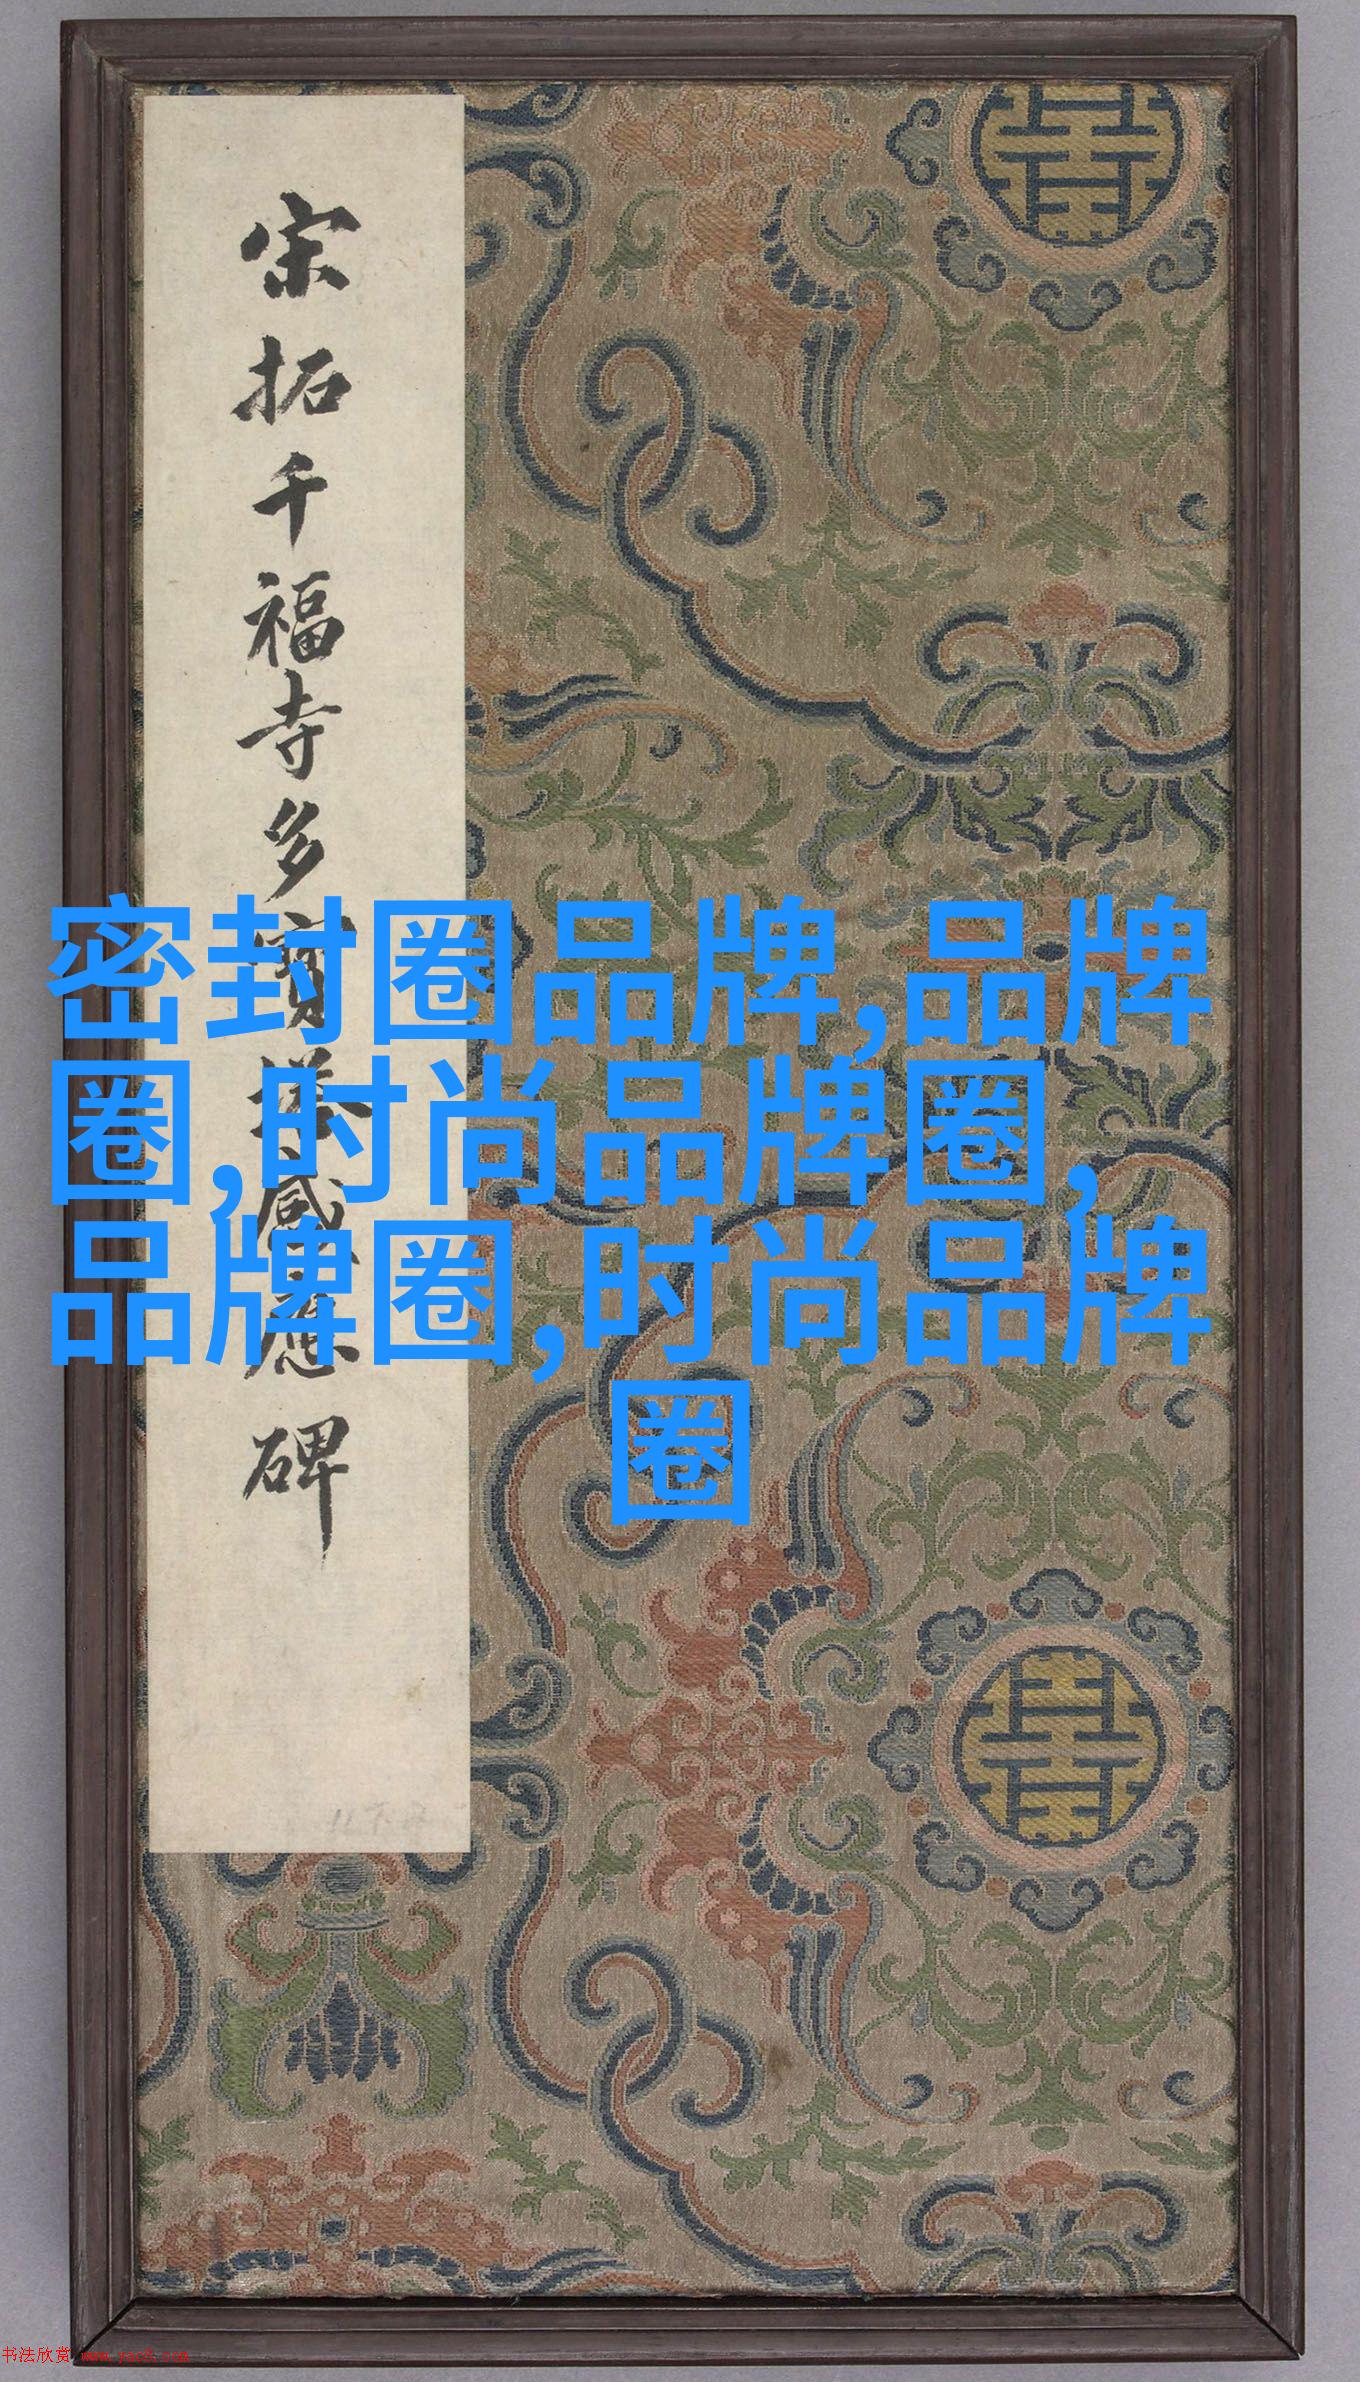 宋拓千福寺多寶塔感應碑
密封圈品牌,品牌
圈,时尚品牌圈,
品牌圈,时尚品牌
圈
书法欣赏 www.yac8.com